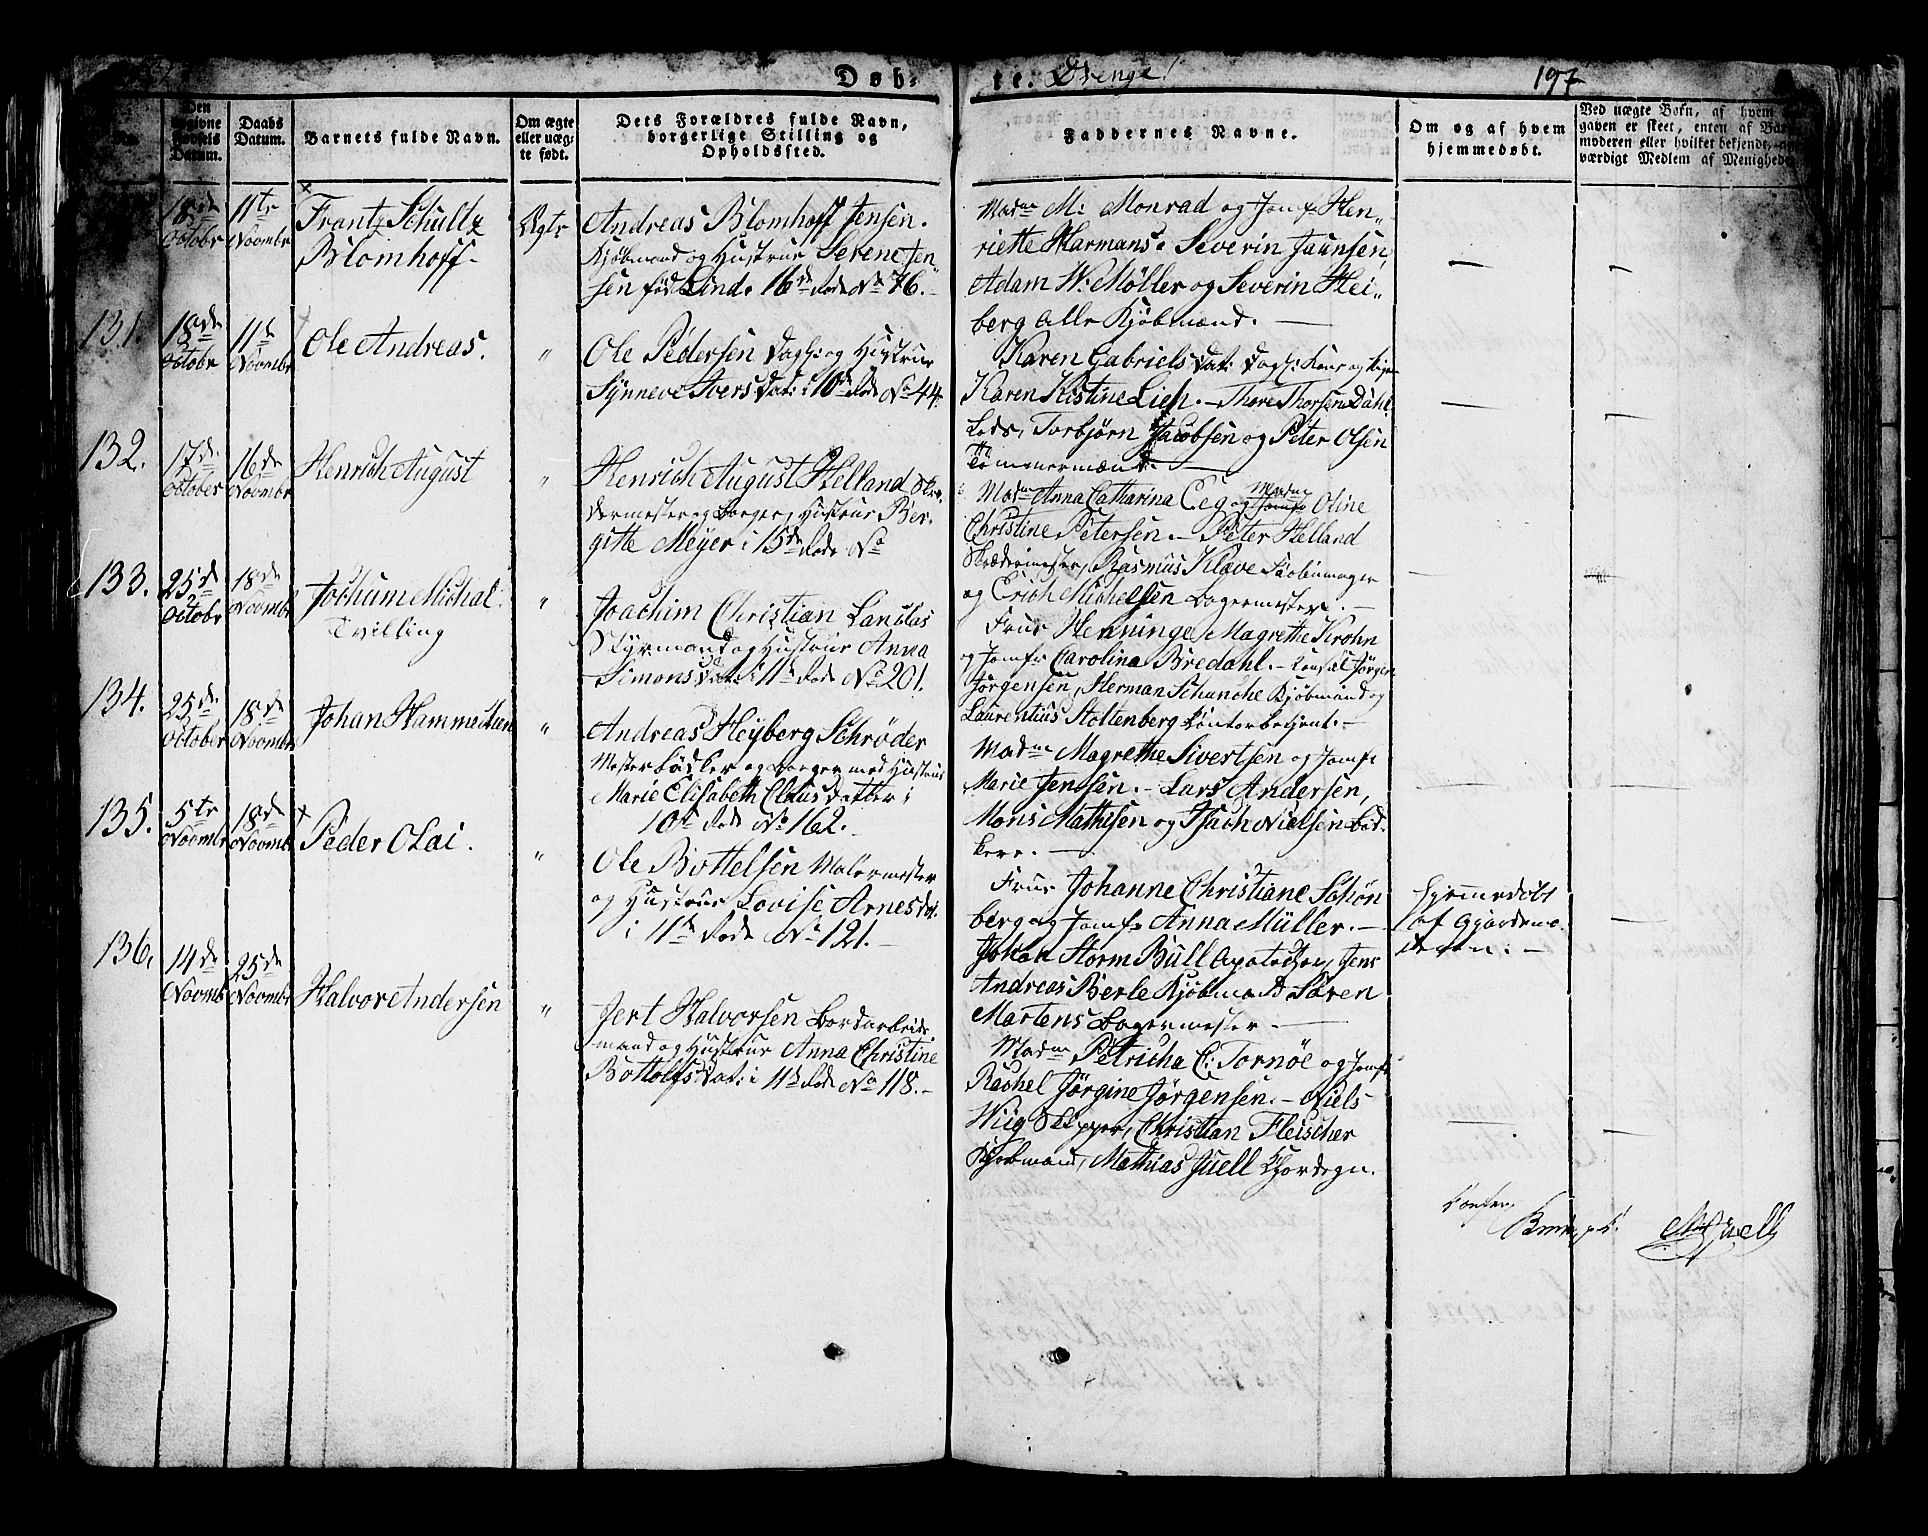 Døb-
te. Drenge!
197
Den
Daabs
Datum.
Barnets fulde Navn.
Om ægte
eller uæg-
te født.
Dets Forældres fulde Navn,
borgerlige Stilling og
Opholdssted.
Faddernes Navne.
Om og af hvem
hjemmedøbt.
Ved uægte Børn, af hvem
gaven er skeet, enten af
moderen eller hvilket bekjendt,
værdigt Medlem af Menighed
18de
October
11te
Novmbr
Frantz Schultz
Blomhoff.
Ægte
Andreas Blomhoff Jensen.
Kjøbmand og Hustrue Serene Jen-
sen fød Lind. 16de Rode No 76.
Madme M: Monrad og Jomf: Hen-
riette Harmans. Severin Jaunsen,
Adam W: Møller og Severin Hei-
berg alle Kjøbmænd. —
131.
18de
October
11te
Novmbr
Ole Andreas.
"
Ole Pedersen Dagk: og Hustrue
Synneve Ivers Dat: i 10de Rode No 44.
Karen Gabriels Dat: Dagk: Kone og Pigen
Karen Kistine Lieh. — Thore Thorsen Dahl
Lods, Torbjørn Jacobsen og Peter Olsen
Tømmermænd. —
132.
17de
October
16de
Novmbr
Henrich August
"
Henrich August Helland Skræ-
dermester og Borger, Hustrue Ber-
gitte Meyer i 15de Rode No
Madme Anna Catharina Eeg og Madme Oline
Christine Petersen. — Peter Helland
Skrædermester, Rasmus Klave Skoemager
og Erich Michelsen Bagermester. —
133.
25de
October
18de
Novmbr
Jochum Michal.
Tvilling
"
Joachim Christian Lanclas
Styrmand og Hustrue Anna
Simons Dat: i 11te Rode No 201.
Frue Henninge Magrethe Krohn
og Jomfr Carolina Bredahl. — Consul Jørgen
Jørgensen, Herman Schanche Kjøbmand og
Laurentius Stoltenberg Contorbetjent. —
134.
25de
October
18de
Novmbr
Johan Hammechen
"
Andreas Heyberg Schrøder
Mester Bødker og Borger med Hustrue
Marie Elisabeth Clausdatter i
10de Rode No 162. —
Madme Magrethe Sivertsen og Jomfr
Marie Jenssen. — Lars Andersen,
Mons Mathisen og Isach Nielsen Bød-
kere. —
135.
5te
Novmbr
18de
Novmbr
Peder Olai.
"
Ole Bottelsen Malermester
og Hustrue Lovise Arnes Dat.
i 11te Rode No 121. —
Frue Johanne Christiane Schøn
berg og Jomfr Anna Müller. —
Johan Storm Bull Apotecher, Jens
Andreas Berle Kjøbmand Søren
Martens Bagermester. —
Hjemmedøbt
af Gjordemo-
deren. —
136.
14de
Novmb
25de
Novmbr
Halvor Andersen
"
Jert Halvorsen Bordarbeids
mand og Hustrue Anna Christine
Bottolfs Dat: i 11te Rode No 118. —
Madme Petricha C: Tornöe og Jomfr
Rachel Jørgine Jørgensen. — Niels
Wiig Skipper, Christian Fleischer
Kjøbmand, Mathias Juell Chordegn.
Juell